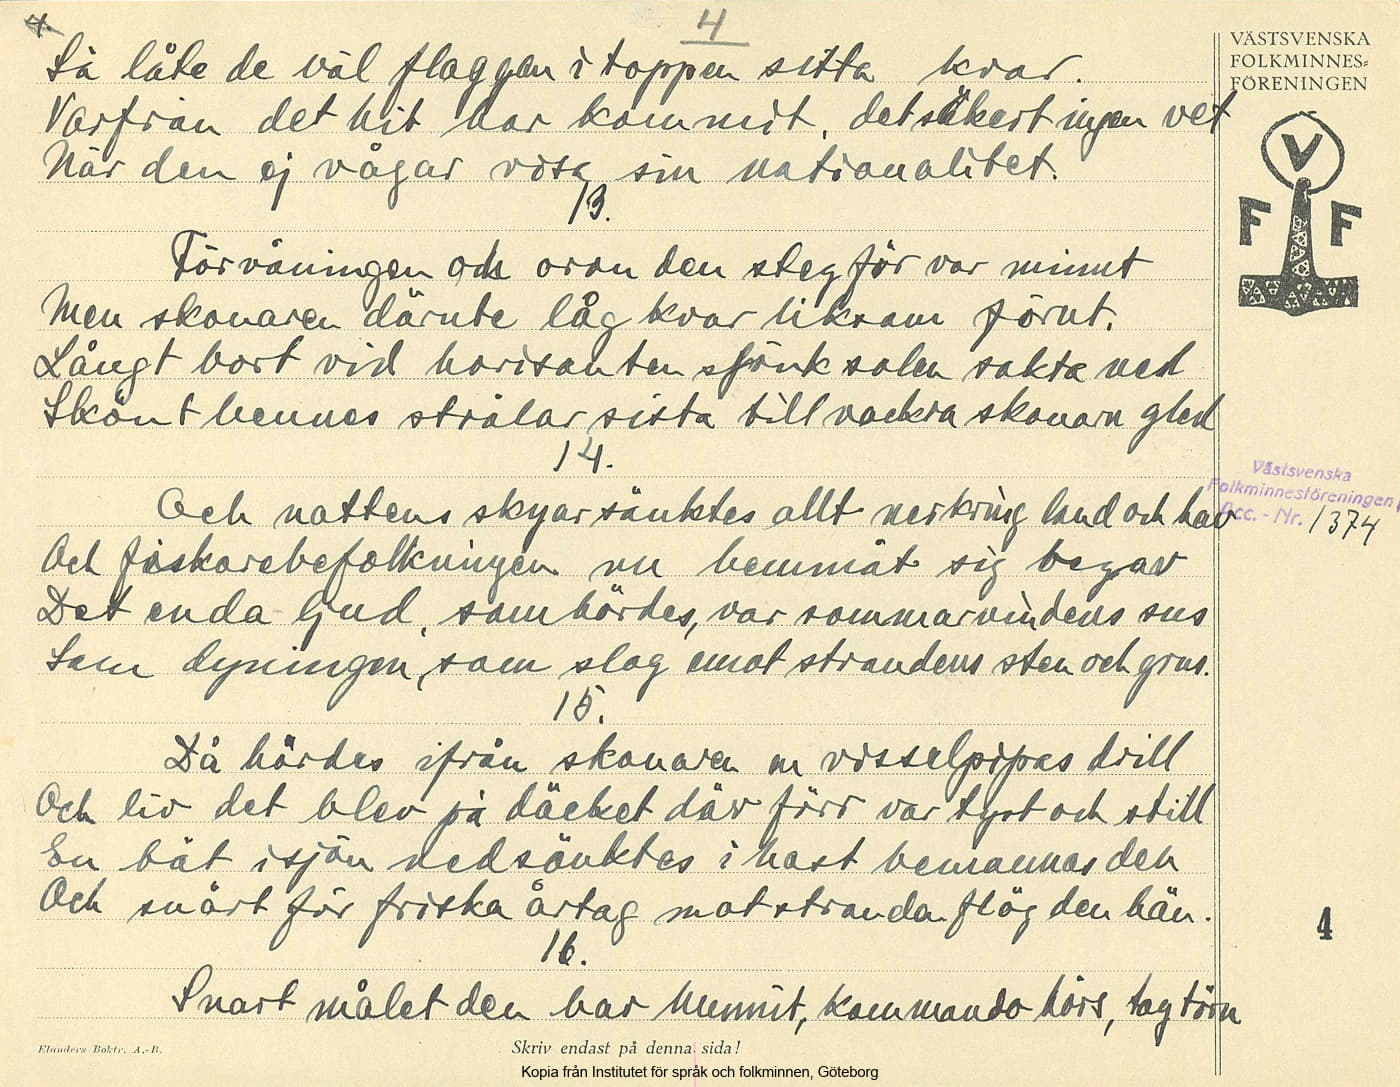 4
Så låte de väl flaggan i toppen sitta kvar.
Varfrån det hit har kommit, det säkert ingen vet
När den ej vågar visa sin nationalitet.
13.
Förvåningen och oron den steg för var minut
Men skonaren därute låg kvar liksom förut.
Långt bort vid horisonten sjönk solen sakta ned
Skönt hennes strålar sista till vackra skonarn gled
14.
Och nattens skyar sänktes allt ner kring land och hav
Och fiskarebefolkningen nu hemmåt sig begav
Det enda ljud, som hördes, var sommarvindens sus
Som dyningen, som slog emot strandens sten och grus.
15.
Då hördes ifrån skonaren en visselpipas drill
Och liv det blev på däcket där förr var tyst och still
En båt i sjön nedsänktes i hast bemannas den
Och snart för friska årtag mot stranda flög den hän.
16.
Snart målet den har hunnit, kommando hörs, tag törn
VÄSTSVENSKA
FOLKMINNES-
FÖRENINGEN
V
F F
Västsvenska
Folkminnesföreningen
Acc. - Nr. 1374
4
Elanders Boktr. A.-B.
Skriv endast på denna sida!
Kopia från Institutet för språk och folkminnen, Göteborg